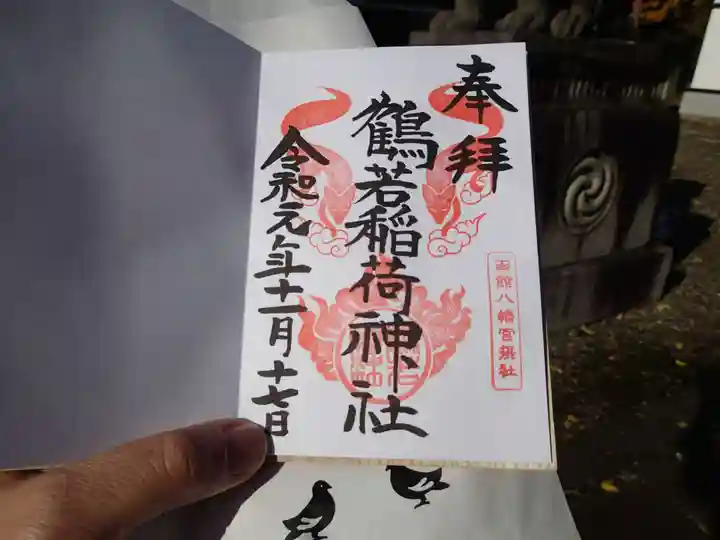 奉拝
函館八幡宮摂社
鶴若稲荷神社
令和元年十一月十七日